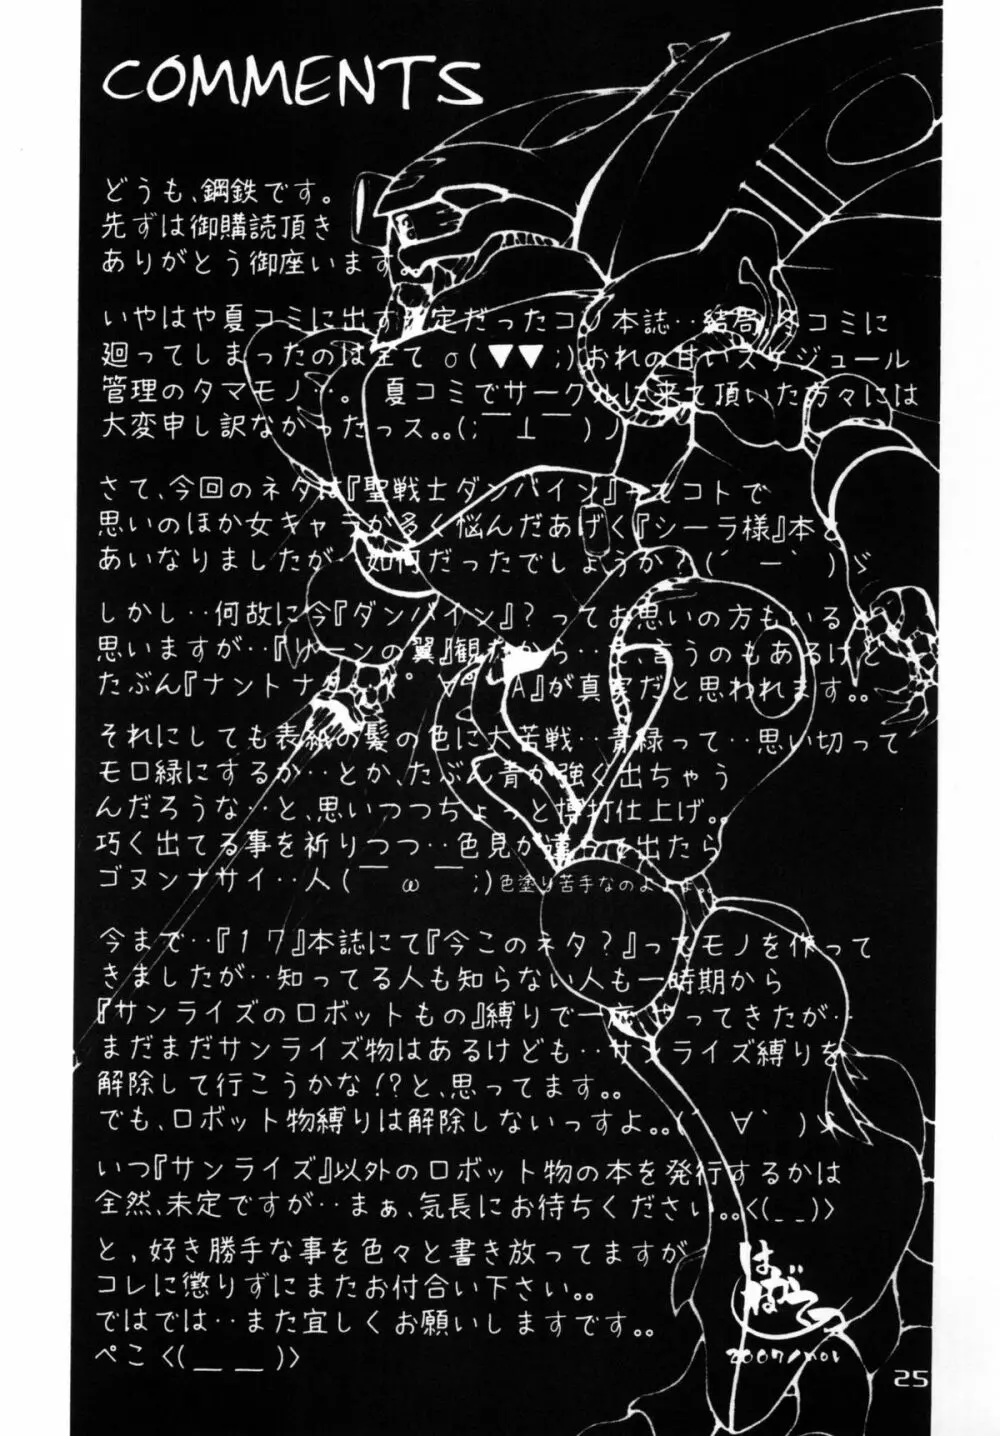 COMMENTS
どうも、鋼鉄です。
先ずは御購読頂き
ありがとう御座います。
いやはや夏コミに出す予定だったコノ本誌‥結局、冬コミに
廻ってしまったのは全てσ(▼▼;)おれの甘いスケジュール
管理のタマモノ‥。夏コミでサークルに来て頂いた方々には
大変申し訳なかったっス｡｡(;￣⊥￣)ノ
さて、今回のネタは『聖戦士ダンバイン』 コトで
思いのほか女キャラが多く悩んだあげく『シーラ様』本と
あいなりましたが‥如何だったでしょうか？(´ー｀)ゞ
しかし‥何故に今『ダンバイン』？ってお思いの方もいる
思いますが‥『リーンの翼』観たから‥と、言うのもあるけど
たぶん『ナントナク が真実だと思われます｡｡
それにしても表紙の髪の色に大苦戦‥青緑って‥思い切って
モロ緑にするか‥とか、たぶん青が強く出ちゃう
んだろうな‥と、思いつつちょっと博打仕上げ｡｡
巧く出てる事を祈りつつ‥色見が違って出たら
ゴヌンナサイ‥人(￣ω￣;)色塗り苦手なのよねぇ｡｡
今まで‥『17』本誌にて『今このネタ？』ってモノを作って
きましたが‥知ってる人も知らない人も一時期から
『サンライズのロボットもの』縛りで一応やってきたが‥
まだまだサンライズ物はあるけども‥サンライズ縛りを
解除して行こうかな!?と、思ってます｡｡
でも、ロボット物縛りは解除しないっすよ｡｡(´∀｀)ゞ
いつ『サンライズ』以外のロボット物の本を発行するかは
全然、未定ですが‥まぁ、気長にお待ちください｡｡<(_ _)>
と，好き勝手な事を色々と書き放ってますが
コレに懲りずにまたお付合い下さい｡｡
ではでは‥また宜しくお願いしますです｡｡
ぺこ<(＿ ＿)>
はがねてつ
2007/nov
25